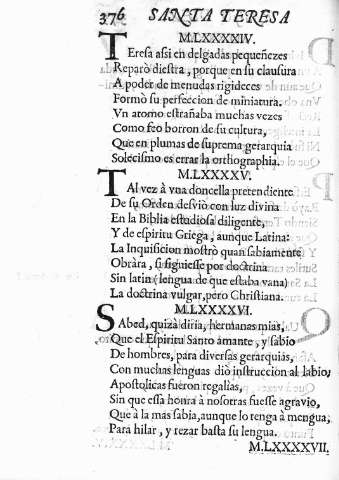 376 SANTA TERESA
M.LXXXXIV.
TEresa assi en delgadas pequeñezes
Reparò diestra, porque en su clausura
A poder de menudas rigideces
Formò su perfeccion de miniatura.
Vn atomo estrañaba muchas vezes
Como feo borron de su cultura,
Que en plumas de suprema gerarquia
Solecismo es errar la orthographia.
M.LXXXXV.
TAl vez à vna doncella pretendiente
De su Orden desviò con luz divina
En la Biblia estudiosa diligente,
Y de espiritu Griega, aunque Latina:
La Inquisicion mostrò quan sabiamente
Obràra, si siguiesse por doctrina
Sin latin (lengua de que estaba vana)
La doctrina vulgar, pero Christiana.
M.LXXXXVI.
SAbed, quizà diria, hermanas mias,
Que el Espiritu Santo amante, y sabio
De hombres, para diversas gerarquias,
Con muchas lenguas diò instruccion al labio;
Apostolicas fueron regalìas,
Sin que essa honra à nosotras fuesse agravio,
Que à la mas sabia, aunque lo tenga à mengua,
Para hilar, y rezar basta su lengua.
M.LXXXXVII.